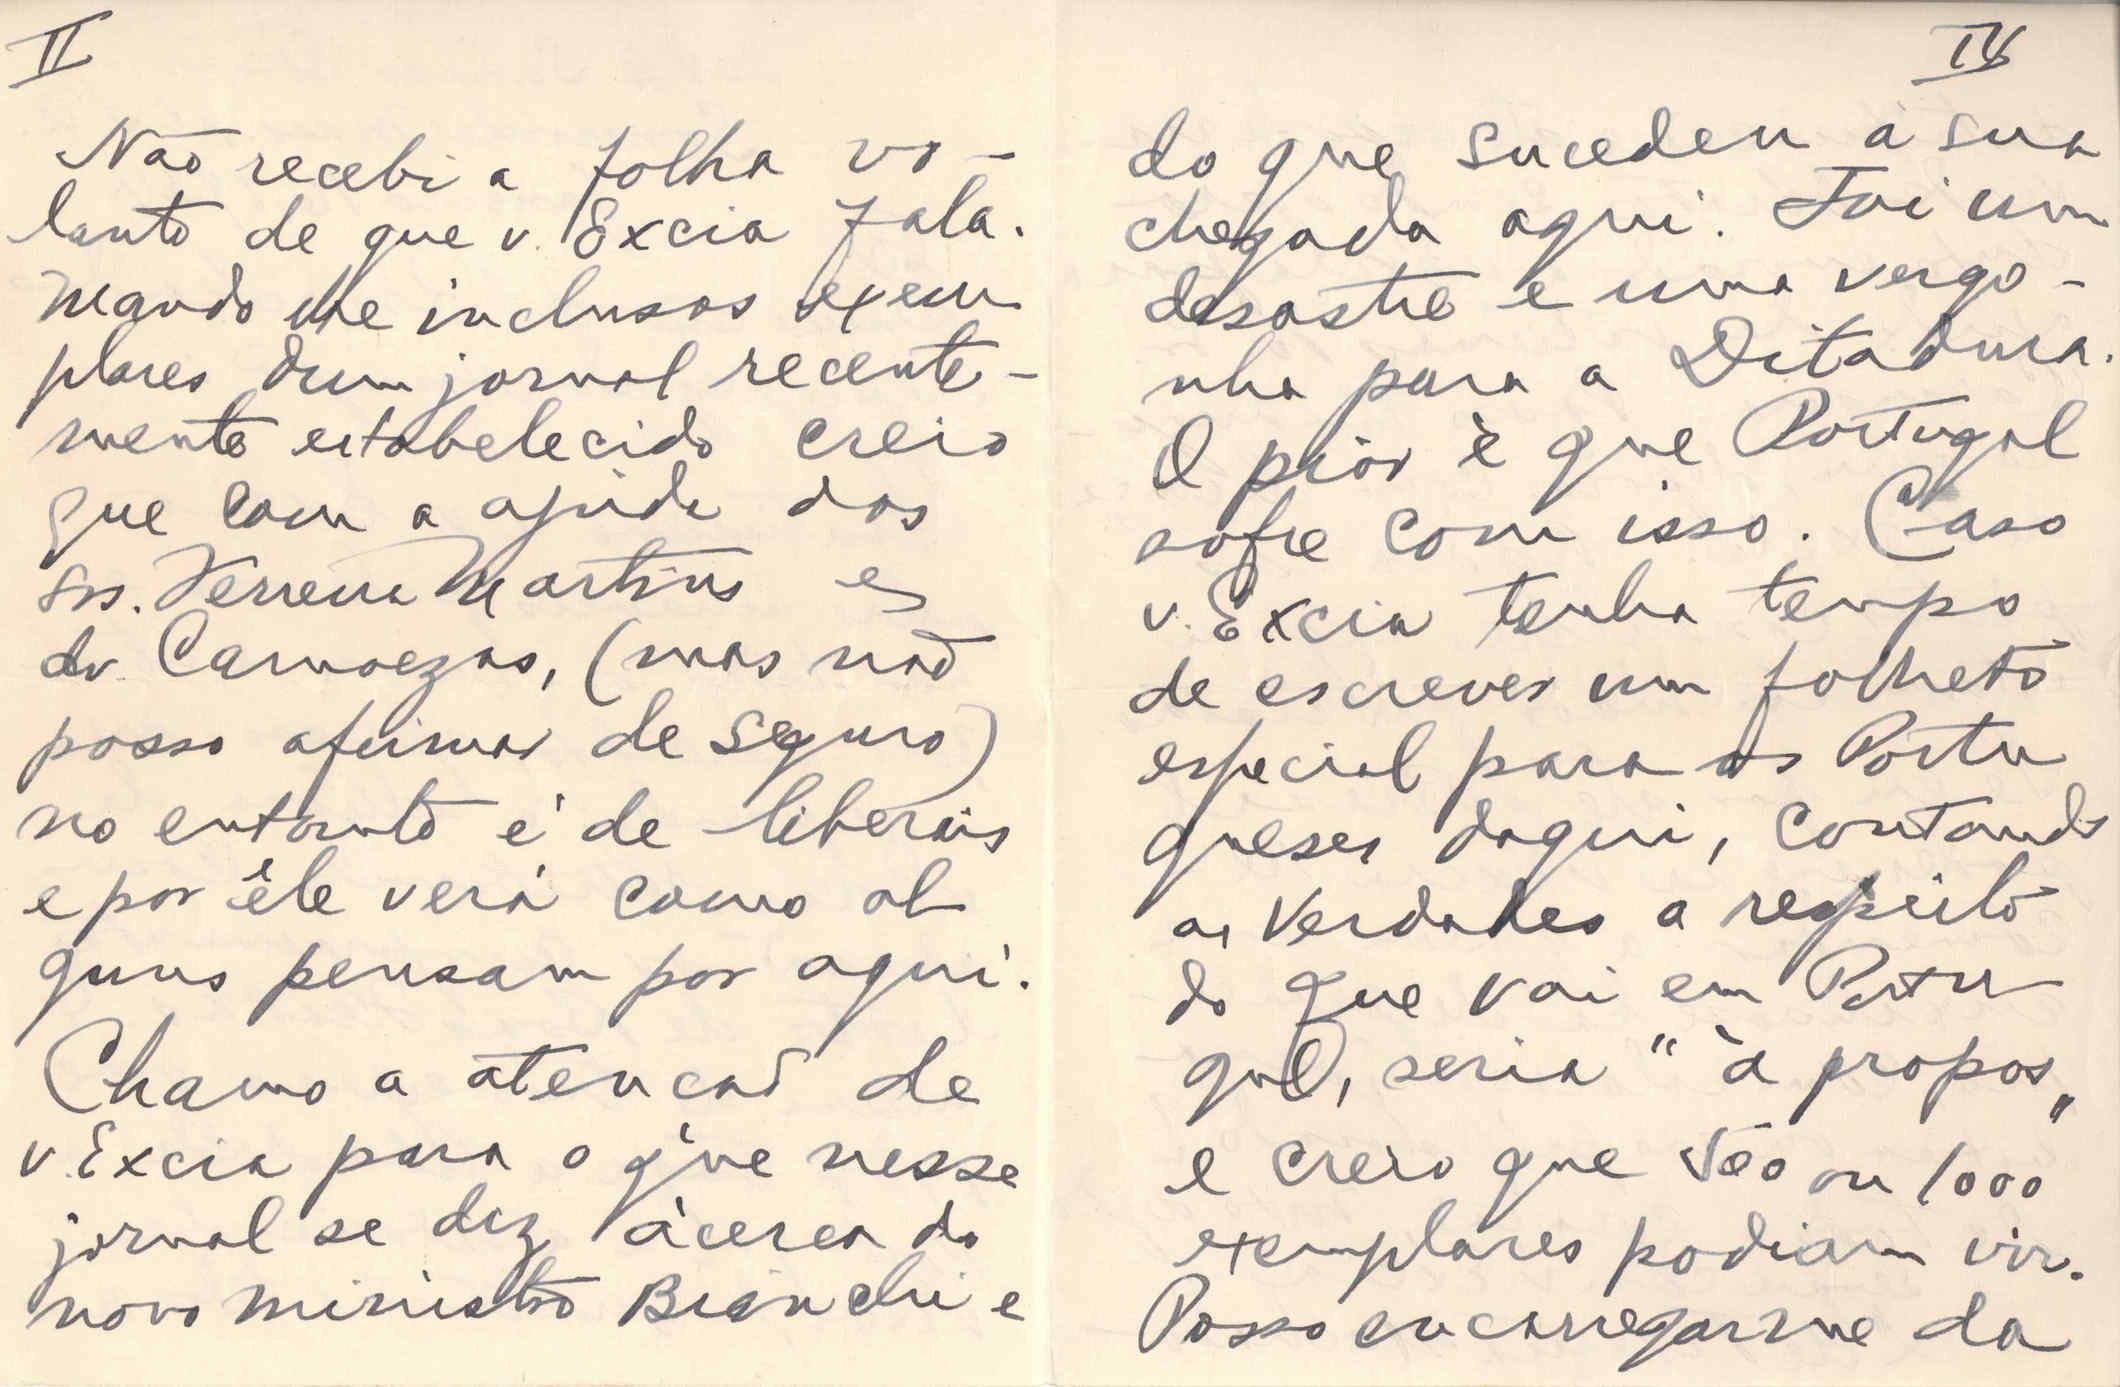 II
Não recebi a folha vo-
lante de que v. Excia fala.
Mando lhe inclusos exem
plares dum jornal recente-
mente estabelecido creio
que com a ajuda dos
srs. Ferreira Martins e
dr. Camoezas, (mas não
posso afirmar de seguro)
no entanto é de liberais
e por êle verá como al
guns pensam por aqui.
Chamo a atencão de
v. Excia para o que nesse
jornal se diz àcerca do
novo ministro Bianchi e
IV
do que sucedeu à sua
chegada aqui. Foi um
desastre e uma vergo-
nha para a Ditadura.
O piór è que Portugal
sofre com isso. Caso
v. Excia tenha tempo
de escrever um folheto
especial para os Portu
gueses daqui, contando
as verdades a respeito
do que vai em Portu
gal, seria "à propos„
e creio que 500 ou 1000
exemplares podiam vir.
Posso encarregar me da